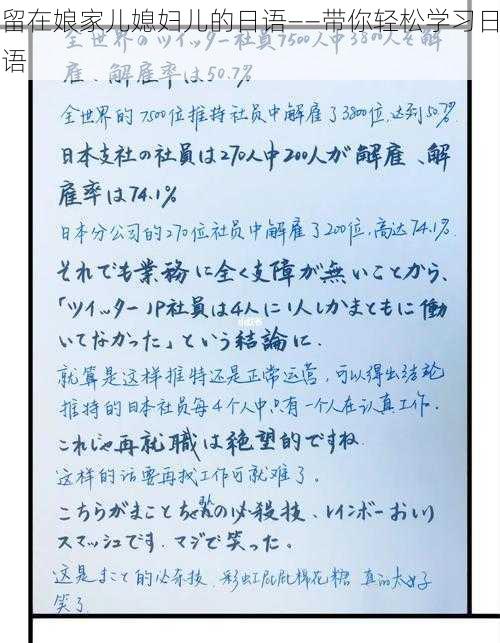 留在娘家儿媳妇儿的日语——带你轻松学习日
语
全世界のツイッター社員7500人中3800人を解
雇、解雇率は50.7%
全世界的7500位推特社员中解雇了3800位,达到50.7%.
日本支社の社員は270人中200人が解雇、解
雇率は74.1%
日本分公司的270位社员中解雇了200位,高达74.1%.
それでも業務に全く支障が無いことから、
「ツイッターJP社員は4人に1人しかまともに働
いてなかった」という結論に.
就算是这样推特还是正常运营,可以得出结论
推特的日本社员每4个人中,只有一个人在认真工作.
これじゃ再就職は絶望的ですね.
这样的话要再找工作可就难了。
こちらがまことちゃんの必殺技、レインボーおいり
スマッシュです.マジで笑った。
这是まこと的必杀技,彩虹屁屁棉花糖 真的太好
笑了.